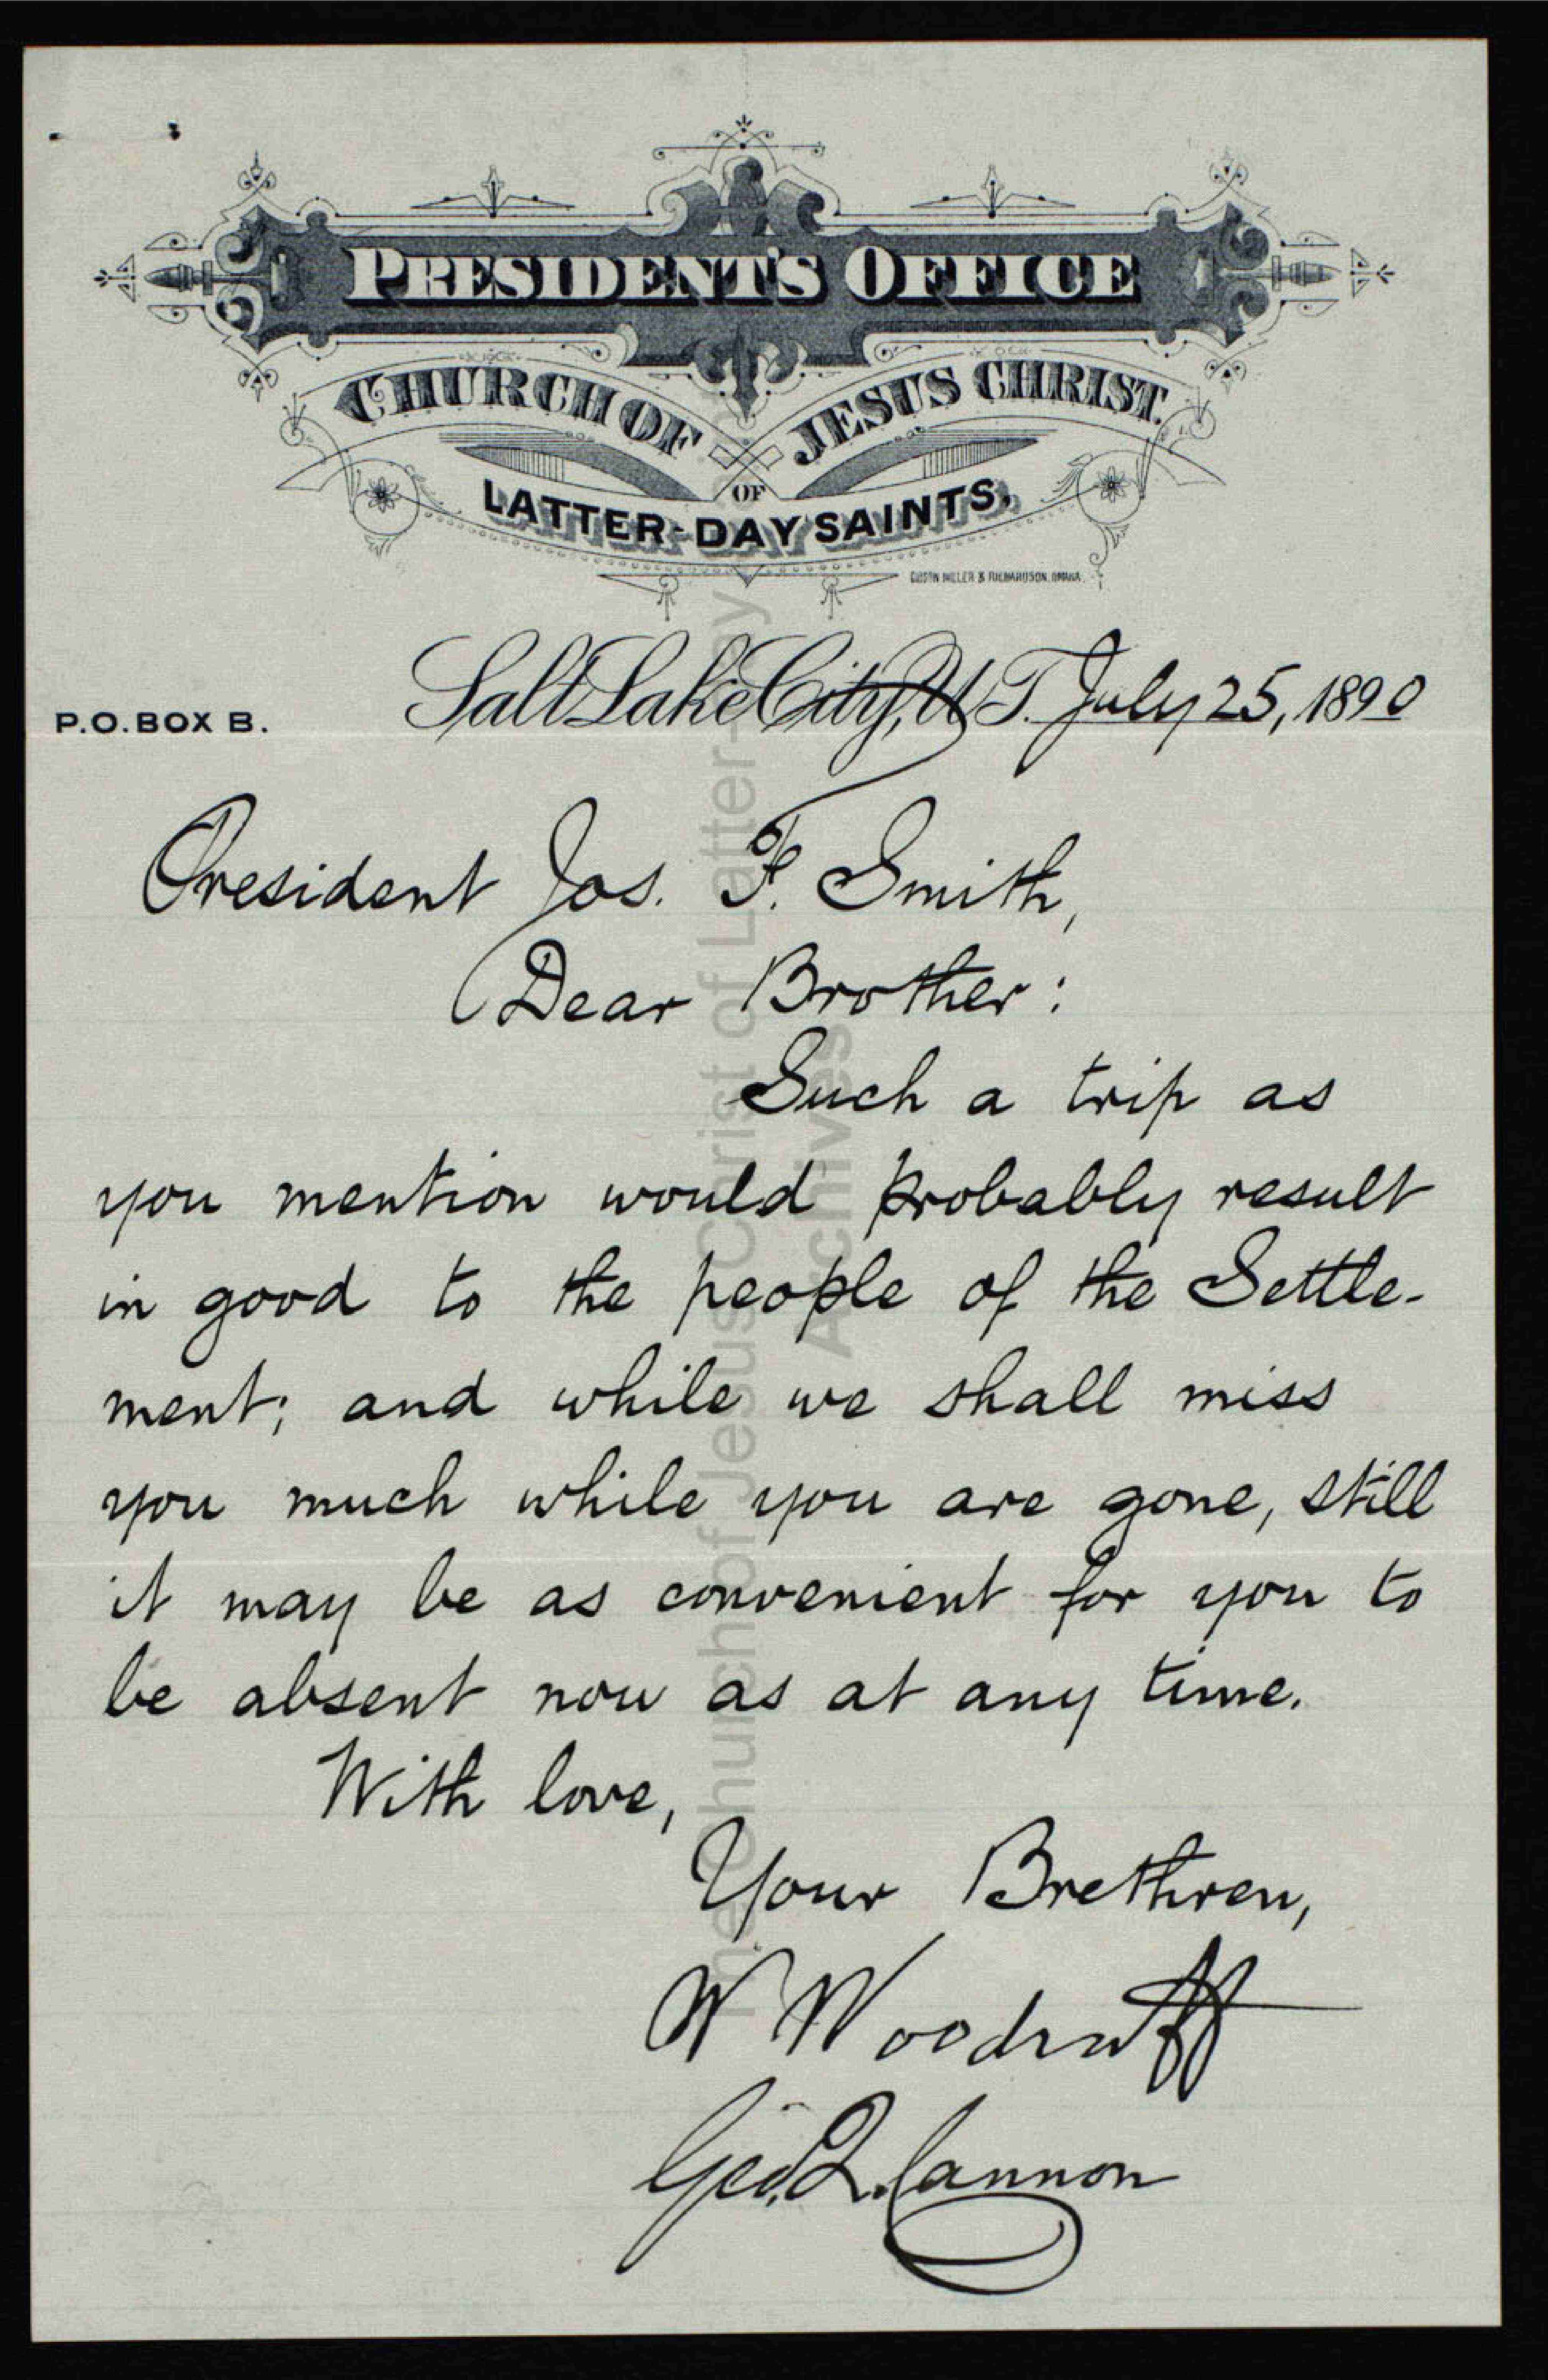 PRESIDENT'S OFFICE
CHURCH OF JESUS CHRIST
OF
LATTER-DAY SAINTS,
P.O. BOX B.
Salt Lake City, U.T. July 25, 1890
President Jos. F. Smith,
Dear Brother:
Such a trip as
you mention would probably result
in good to the people of the Settle-
ment; and while we shall miss
you much while you are gone, still
it may be as convenient for you to
be absent now as at any time.
With love,
Your Brethren,
W Woodruff
Geo. Q. Cannon
The Church of Jesus Christ of Latter-day
Archives